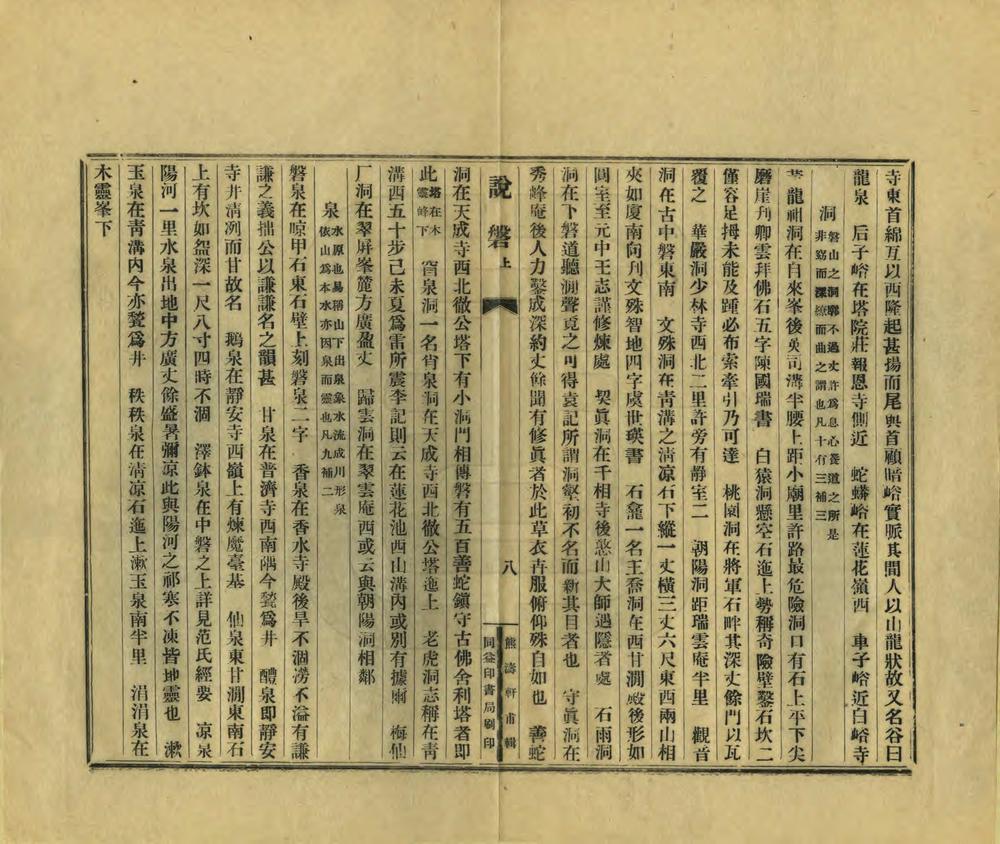 寺東首綿亙以西隆起甚揚而尾與首顧暗峪實脈其間人以山龍狀故又名谷曰
龍泉　后子峪在塔院莊報恩寺側近　蛇蟒峪在蓮花嶺西　車子峪近白峪寺
洞　磐山之洞廓不過丈許爲息心養道之所是
非窈而深繚而曲之謂也凡十有三補三
龍湫洞在自來峯後英司溝半腰上距小廟里許路最危險洞口有石上平下尖
磨崖刋卿雲拜佛石五字陳國瑞書　白猿洞懸空石迤上勢稱奇險壁鑿石坎二
僅容足拇未能及踵必布索牽引乃可達　桃園洞在將軍石畔其深丈餘門以瓦
覆之　華嚴洞少林寺西北二里許旁有靜室二　朝陽洞距瑞雲庵半里　觀音
洞在古中磐東南　文殊洞在青溝之清凉石下縱一丈橫三丈六尺東西兩山相
夾如廈南向刋文殊智地四字虞世瑛書　石龕一名王喬洞在西甘澗殿後形如
闠室至元中王志謹修煉處　契眞洞在千相寺後憨山大師遇隱者處　石雨洞
洞在下磐道聽澗聲竟之可得袁記所謂洞壑初不名而新其目者也　守眞洞在
秀峰庵後人力鑿成深約丈餘聞有修眞者於此草衣卉服俯仰殊自如也　善蛇
說磐　上　八
熊濤軒甫輯
同益印書局刷印
洞在天成寺西北徹公塔下有小洞門相傳磐有五百善蛇鎭守古佛舍利塔者即
此　塔在木靈峰下　窅泉洞一名肯泉洞在天成寺西北徹公塔迤上　老虎洞志稱在青
溝西五十步己未夏爲雷所震李記則云在蓮花池西山溝內或別有據爾　梅仙
厂洞在翠屏峯麓方廣盈丈　歸雲洞在翠雲庵西或云與朝陽洞相鄰
泉　水原也易稱山下出泉象水流成川形泉
依山爲本水亦因泉而靈也凡九補二
磐泉在晾甲石東石壁上刻磐泉二字　香泉在香水寺殿後旱不涸澇不溢有謙
謙之義拙公以謙謙名之韻甚　甘泉在普濟寺西南隅今甃爲井　醴泉即靜安
寺井清冽而甘故名　鵝泉在靜安寺西嶺上有煉魔臺基　仙泉東甘澗東南石
上有坎如盌深一尺八寸四時不涸　澤鉢泉在中磐之上詳見范氏經婁　凉泉
陽河一里水泉出地中方廣丈餘盛暑彌凉此與陽河之祁寒不凍皆地靈也　漱
玉泉在青溝內今亦甃爲井　秩秩泉在清凉石迤上漱玉泉南半里　涓涓泉在
木靈峯下